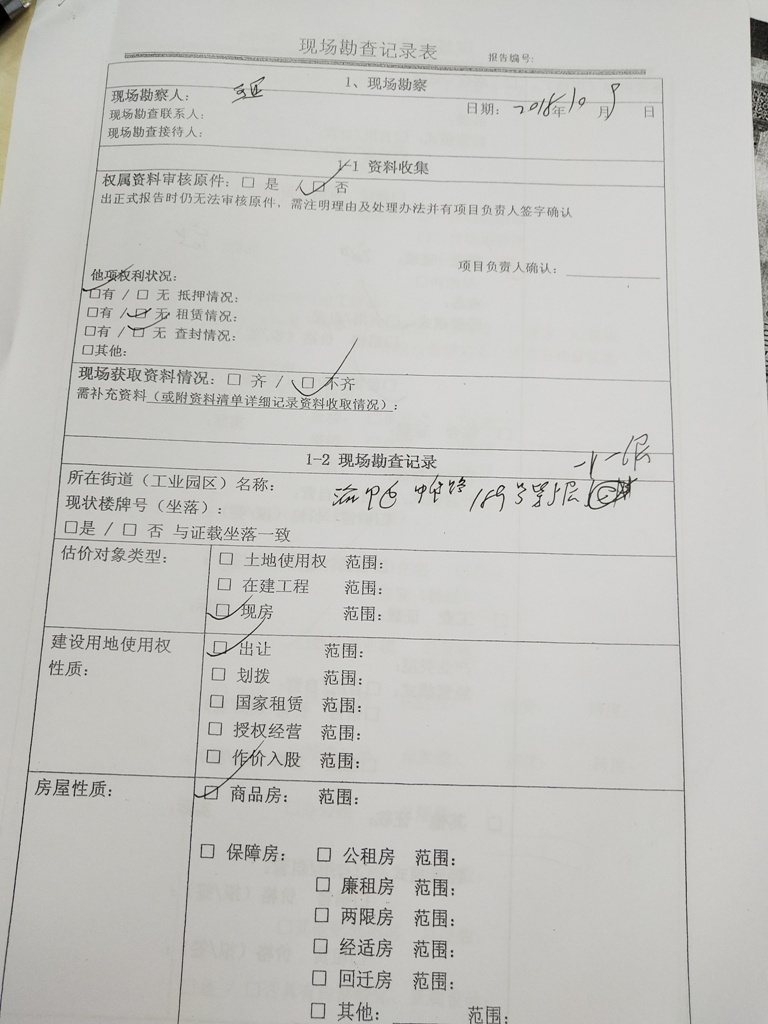 现场勘查记录表
报告编号:
1、现场勘察
现场勘察人:
日期: 2018年10月9日
现场勘查联系人:
现场勘查接待人:
1-1 资料收集
权属资料审核原件: □ 是 / □ 否
出正式报告时仍无法审核原件,需注明理由及处理办法并有项目负责人签字确认
项目负责人确认:
他项权利状况:
□有 / □ 无 抵押情况:
□有 / □ 无 租赁情况:
□有 / □ 无 查封情况:
□其他:
现场获取资料情况: □ 齐 / □ 不齐
需补充资料(或附资料清单详细记录资料收取情况):
1-2 现场勘查记录
所在街道(工业园区)名称:
现状楼牌号(坐落): 189号
□是 / □ 否 与证载坐落一致
估价对象类型:
□ 土地使用权 范围:
□ 在建工程 范围:
□ 现房 范围:
建设用地使用权性质:
□ 出让 范围:
□ 划拨 范围:
□ 国家租赁 范围:
□ 授权经营 范围:
□ 作价入股 范围:
房屋性质:
□ 商品房: 范围:
□ 保障房: □ 公租房 范围:
□ 廉租房 范围:
□ 两限房 范围:
□ 经适房 范围:
□ 回迁房 范围:
□ 其他: 范围: